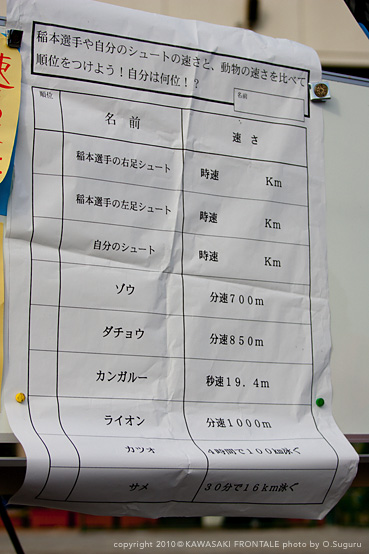 稲本選手や自分のシュートの速さと、動物の速さを比べて
順位をつけよう！自分は何位！？
名前
順位 名前 速さ
稲本選手の右足シュート 時速 Km
稲本選手の左足シュート 時速 Km
自分のシュート 時速 Km
ゾウ 分速７００ｍ
ダチョウ 分速８５０ｍ
カンガルー 秒速１９．４ｍ
ライオン 分速１０００ｍ
カツオ ４時間で１００ｋｍ泳ぐ
サメ ３０分で１６ｋｍ泳ぐ
copyright 2010© KAWASAKI FRONTALE photo by O.Suguru